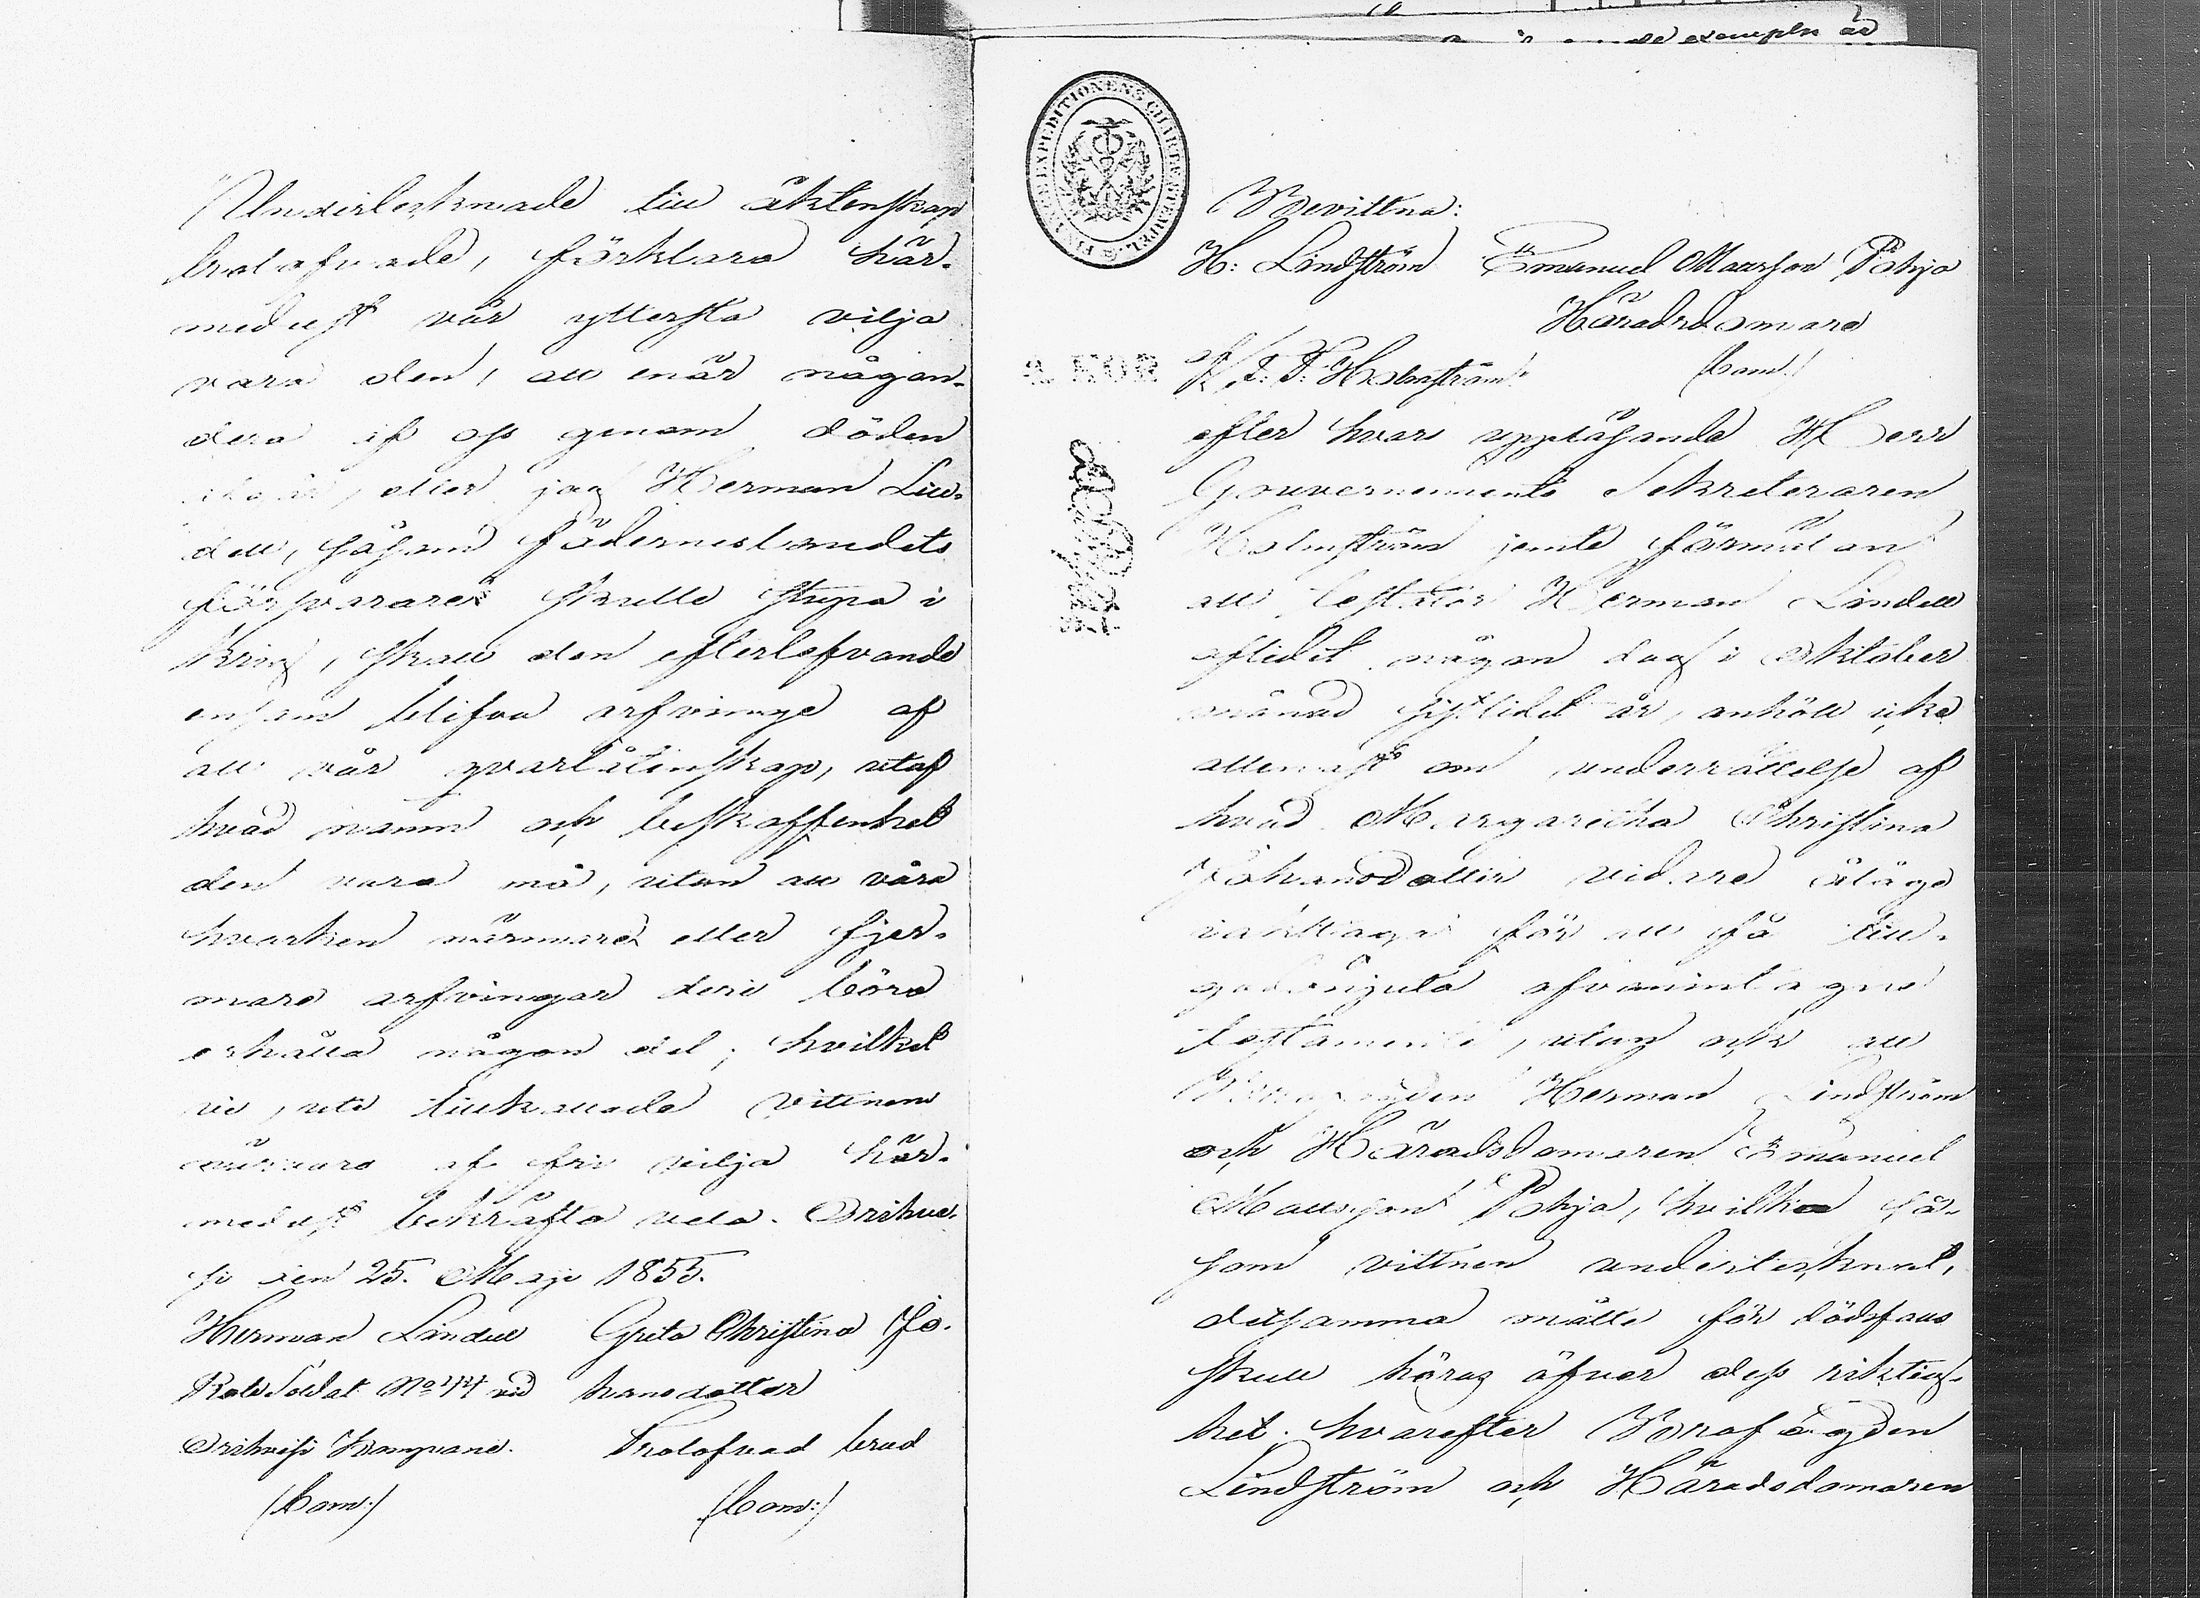 exemplar är
"Undertecknade till äktenskap
trolofvade, förklara här-
medelst vår yttersta vilja
vara den, att enär någon-
dera af oss genom döden
afgår, eller jag Herman Lin-
dell, såsom fäderneslandets
försvarare skulle stupa i
krig, skall den efterlefvande
ensam blifva arfvinge af
all vår qvarlåtenskap, utaf
hvad namn och beskaffenhet
den vara må, utan att våra
hvarken närmare eller fjer-
mare arfvingar deri böra
erhålla någon del; hvilket
vi, uti tillkallade vittnens
närvaro af fri vilja här-
medelst bekräfta vela. Orihve-
si den 25. Maji 1855.
Herman Lindell Greta Christina Jo-
Rote Soldat No 44 vid hansdotter
Orihvesi Kompanie. Trolofvad brud
(bom:) (bom:)
FINANCE EXPEDITIONENS CHARTÆ STEMPEL
Bevittna:
H: Lindström Emanuel Mattsson Pohja
Häradsdomare
K. F. F. Holmström (bom:)
2 KOP.
efter hvars uppläsande Herr
Gouvernements Sekreteraren
Holmström jemte förmälan
att testator Herman Lindell
aflidit någon dag i Oktober
månad sistlidet år, anhöll icke
allenast om underrättelse af
hvad Margaretha Christina
Johansdotter vidare ålåge
iakttaga för att få till-
godonjuta ofvanintagne
testamente, utan ock att
Brofogden Herman Lindström
och Häradsdomaren Emanuel
Mattsson Pohja, hvilka så-
som vittnen undertecknat
detsamma måtte för dödsfalls
skull höras öfver dess riktig-
het. hvarefter Brofogden
Lindström och Häradsdomaren